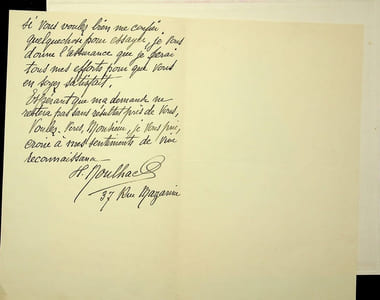 si vous voulez bien me confier
quelquechose pour essayer, je vous
donne l'assurance que je ferai
tous mes efforts pour que vous
en soyez satisfait.
Espérant que ma demande ne
restera pas sans résultat près de vous,
Veuillez, Monsieur, je vous prie,
croire à mes sentiments de vive
reconnaissance
H. Moulhac
37 Rue Mazarine